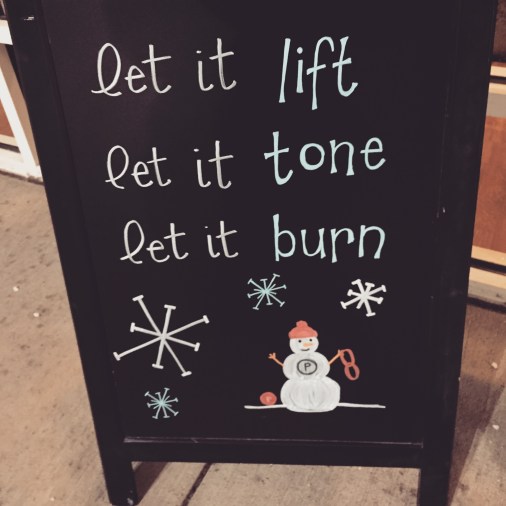 let it lift
let it tone
let it burn
P